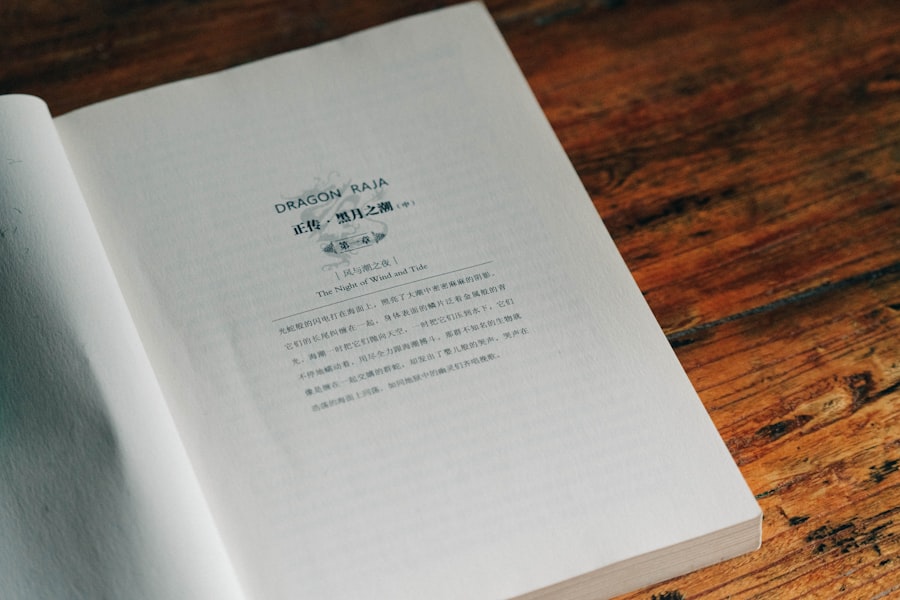 DRAGON RAJA
正传·黑月之潮（中）
第一章
［风与潮之夜］
The Night of Wind and Tide
光蛇般的闪电打在海面上，照亮了大潮中密密麻麻的阴影。
它们的长尾纠缠在一起，身体表面的鳞片泛着金属般的青
光，海潮一时把它们抛向天空，一时把它们压到水下，它们
不停地蠕动着，用尽全力跟海潮搏斗。那群不知名的生物就
像是缠在一起交媾的群蛇，却发出了婴儿般的哭声，哭声在
浩荡的海面上回荡，如同地狱中的幽灵们齐唱挽歌。